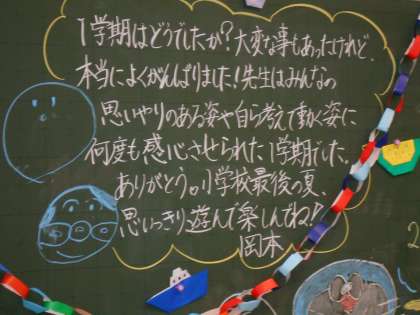 1学期はどうでしたか?大変な事もあったけれど、
本当によくがんばりました!先生はみんなの
思いやりのある姿や自ら考えて動く姿に
何度も感心させられた1学期でした。
ありがとう。小学校最後の夏、
思いっきり遊んで楽しんでね♪
岡本